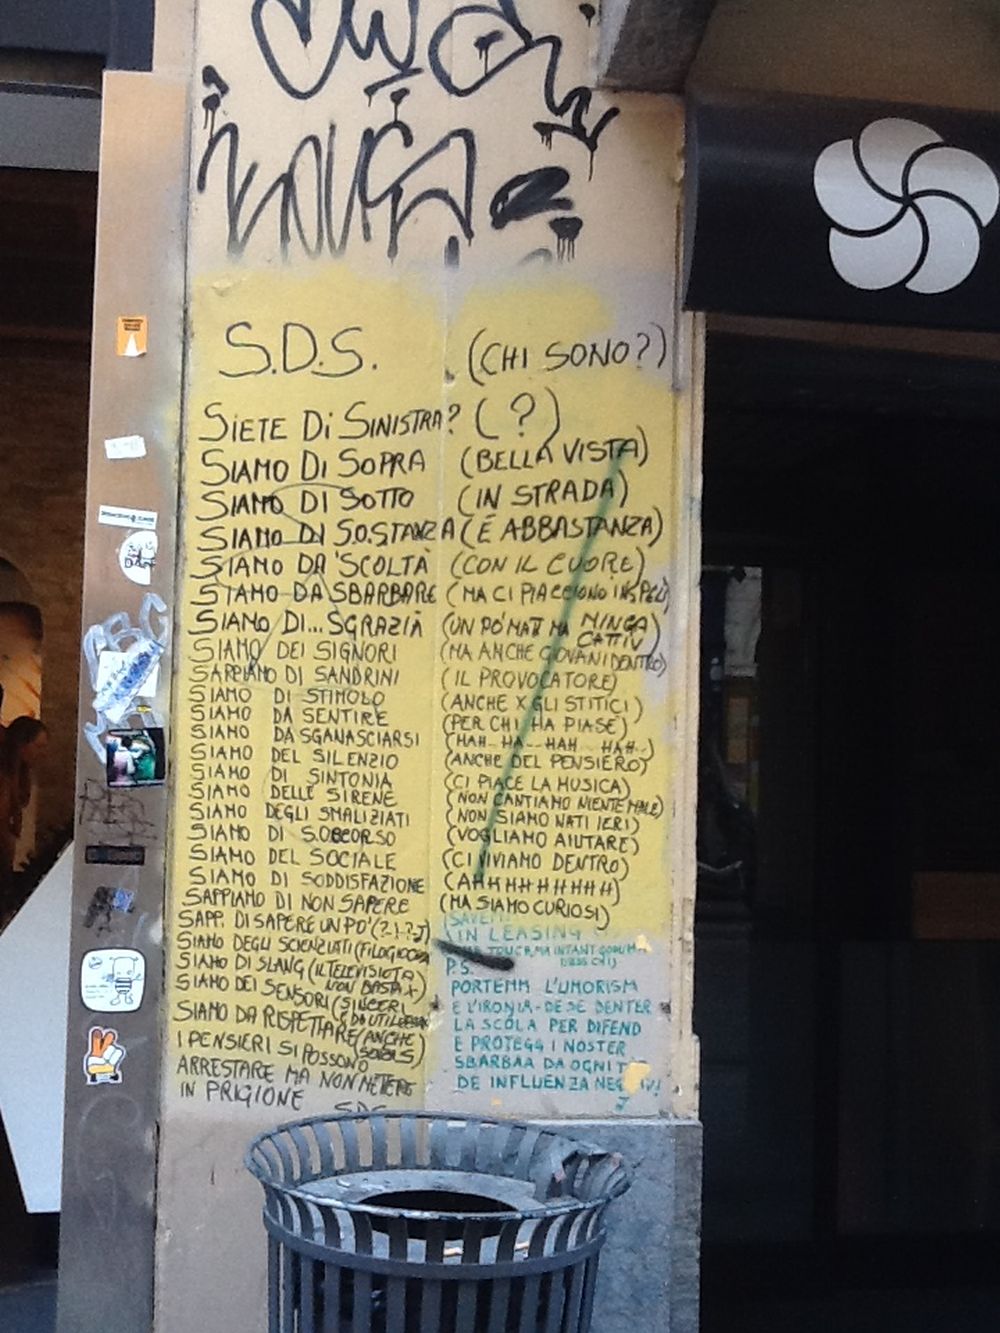 S.D.S. (CHI SONO?)
SIETE Di SINISTRA? (?)
SIAMO DI SOPRA (BELLA VISTA)
SIAMO DI SOTTO (IN STRADA)
SIAMO DI S.O.STANZA (È ABBASTANZA)
SIAMO DA 'SCOLTÀ (CON IL CUORE)
STAMO DA SBARBARE (MA CI PIACCIONO
SIAMO DI... SGRAZIÀ (UN PO' MAT MA MINGA CATTIV)
SIAMO DEI SIGNORI (MA ANCHE GIOVANI DENTRO)
SAPPIAMO DI SANDRINI (IL PROVOCATORE)
SIAMO DI STIMOLO (ANCHE X GLI STITICI)
SIAMO DA SENTIRE (PER CHI HA PIASE)
SIAMO DA SGANASCIARSI (HAH-HA--HAH HAH..)
SIAMO DEL SILENZIO (ANCHE DEL PENSIERO)
SIAMO DI SINTONIA (CI PIACE LA MUSICA)
SIAMO DELLE SIRENE (NON CANTIAMO NIENTE MALE)
SIAMO DEGLI SMALIZIATI (NON SIAMO NATI IERI)
SIAMO DI SOCCORSO (VOGLIAMO AIUTARE)
SIAMO DEL SOCIALE (CI VIVIAMO DENTRO)
SIAMO DI SODDISFAZIONE (AHHHHHHHH)
SAPPIAMO DI NON SAPERE (MA SIAMO CURIOSI)
SAPP. DI SAPERE UN PO'
SIAMO DEGLI SCIENZIATI
SIAMO DI SLANG (IL TELEVISIOTA NON BASTA)
SIAMO DEI SENSORI (SINCERI
SIAMO DA RISPETTARE (ANCHE)
I PENSIERI SI POSSONO
ARRESTARE MA NON METERE
IN PRIGIONE
SDS
IN LEASING
P.S.
PORTEMM L'UMORISM
E L'IRONIA-DESE DENTER
LA SCOLA PER DIFEND
E PROTEGG I NOSTER
SBARBAA DA OGNI
DE INFLUENZA